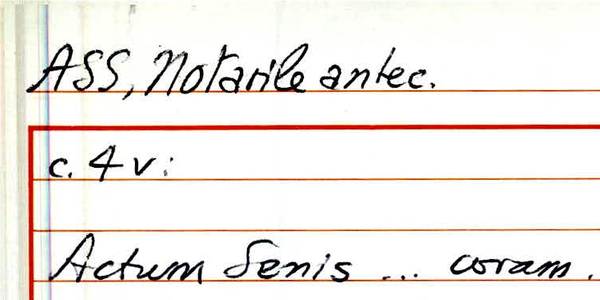 ASS, Notarile antec.
c. 4 v:
Actum Senis ... coram.